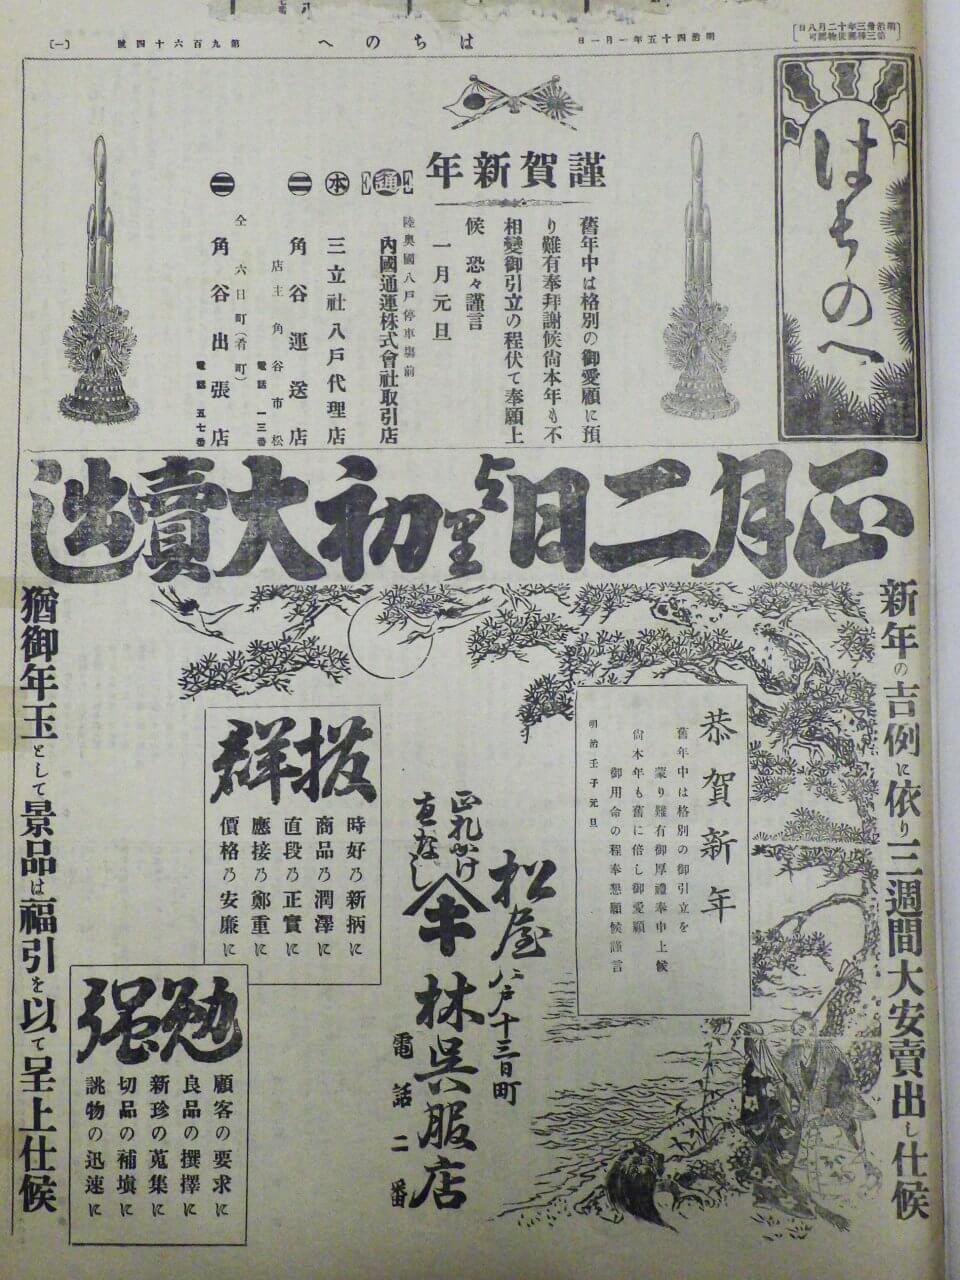 明治卅三年十二月八日
第三種郵便物認可
明治四十五年一月一日
はちのへ
第九百六十四號
(一)
はちのへ
謹賀新年
舊年中は格別の御愛顧に預
り難有奉拜謝候尙本年も不
相變御引立の程伏て奉願上
候 恐々謹言
一月元旦
陸奥國八戸停車塲前
通
內國通運株式會社取引店
本
三立社八戸代理店
二
角谷運送店
店主 角谷市松
電話 一三番
二
仝 六日町(肴町)
角谷出張店
電話 五七番
正月二日より初大賣出
新年の吉例に依り三週間大安賣出し仕候
恭賀新年
舊年中は格別の御引立を
蒙り難有御厚禮奉申上候
尙本年も舊に倍し御愛顧
御用命の程奉懇願候謹言
明治壬子元旦
松屋
八戸十三日町
林吳服店
電話二番
正札かけ
直なし
拔群
時好乃新柄に
商品乃潤澤に
直段乃正實に
應接乃鄭重に
價格乃安廉に
勉强
顧客の要求に
良品の撰擇に
新珍の蒐集に
切品の補塡に
誂物の迅速に
猶御年玉として景品は福引を以て呈上仕候